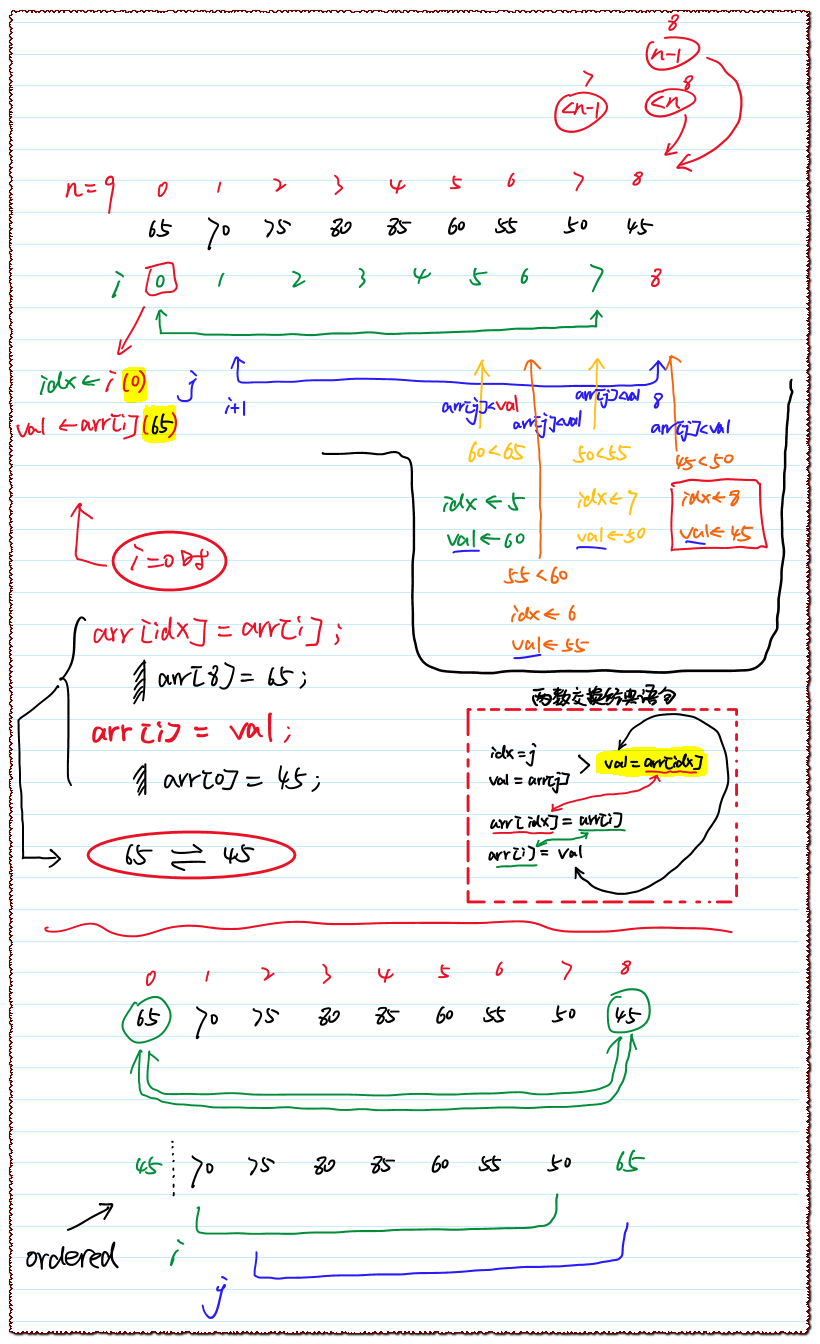 8
n-1
7 8
<n-1 <n
n=9 0 1 2 3 4 5 6 7 8
65 70 75 80 85 60 55 50 45
i 0 1 2 3 4 5 6 7 8
idx ← i (0) j i+1 8
val ← arr[i] (65)
arr[j]<val arr[j]<val arr[j]<val arr[j]<val
60<65 50<55 45<50
idx ← 5 idx ← 7 idx ← 8
val ← 60 val ← 50 val ← 45
i=0时
55<60
idx ← 6
val ← 55
arr[idx] = arr[i];
arr[8] = 65;
arr[i] = val;
arr[0] = 45;
65 ⇌ 45
两数交换经典语句
idx=j
val = arr[j] > val = arr[idx]
arr[idx] = arr[i]
arr[i] = val
0 1 2 3 4 5 6 7 8
65 70 75 80 85 60 55 50 45
45 70 75 80 85 60 55 50 65
ordered i
j